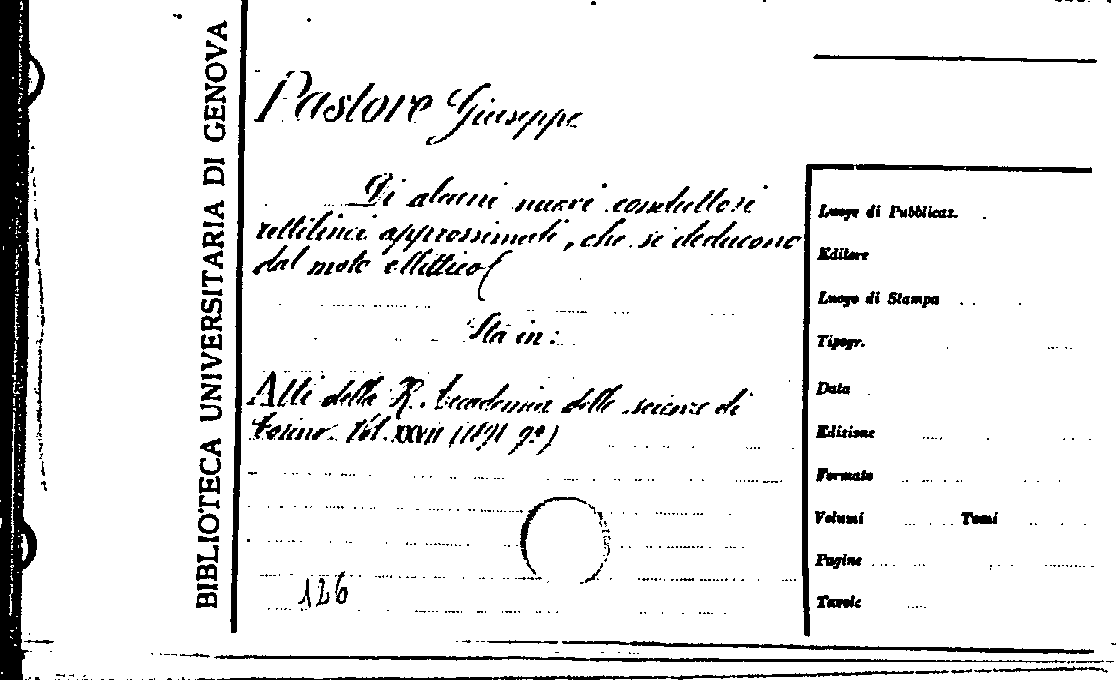 BIBLIOTECA UNIVERSITARIA DI GENOVA
Pastore Giuseppe
Di alcuni nuovi conduttori
rettilinei approssimati, che si deducono
dal moto ellittico(
Sta in:
Atti della R. Accademia delle scienze di
Torino. Vol. XXVII (1891 92)
126
Luogo di Pubblicaz.
Editore
Luogo di Stampa
Tipogr.
Data
Edizione
Formato
Volumi Tomi
Pagine
Tavole